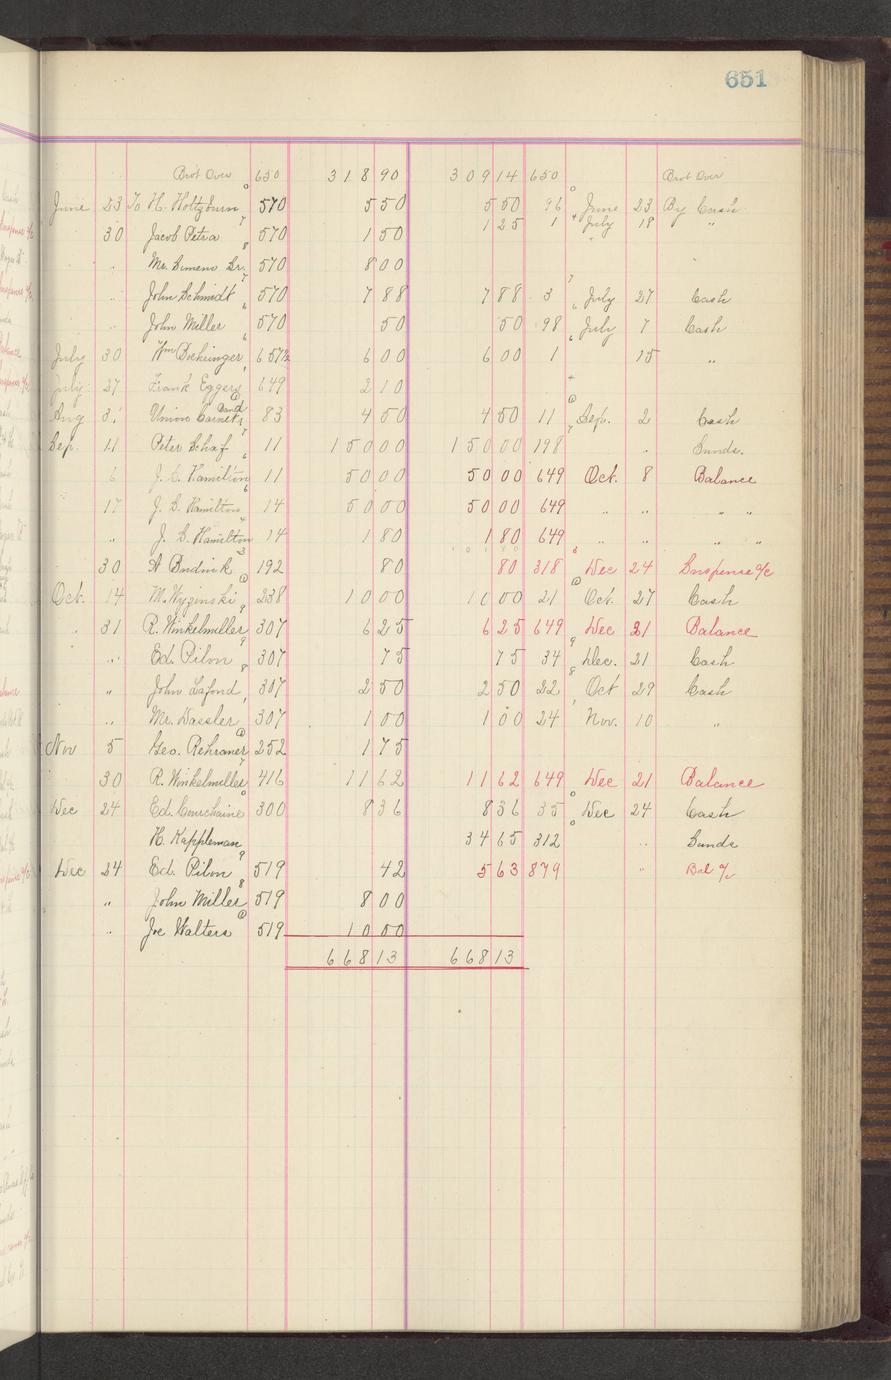 651
Brot Over 650 318 90 309 14 650 Brot Over
June 23 To H. Holtzburn 570 5 50 5 50 96 June 23 By Cash
1 25 1 July 18 "
30 Jacob Petra 570 1 50
" Mr. Simeno Sr. 570 8 00
" John Schmidt 570 7 88 7 88 3 July 27 Cash
" John Miller 570 50 50 98 July 7 Cash
July 30 Wm 6 00 6 00 1 15 "
July 27 Frank Eggers 649 2 10
Aug 31 Union Cornet Band 83 4 50 4 50 11 Sep. 2 Cash
Sep. 11 Peter Schaf 11 150 00 150 00 198 " Sunds.
6 J. S. Hamilton 11 50 00 50 00 649 Oct. 8 Balance
17 J. S. Hamilton 14 50 00 50 00 649 " " " "
" J. S. Hamilton 14 1 80 1 80 649 " " " "
30 A Budnik 192 80 80 318 Dec 24 Suspense a/c
Oct. 14 M. Wyginski 238 10 00 10 00 21 Oct. 27 Cash
" 31 R. Winkelmiller 307 6 25 6 25 649 Dec 21 Balance
" Ed. Pilon 307 75 75 34 Dec. 21 Cash
" John Lafond 307 2 50 2 50 22 Oct 29 Cash
" Mr. Dassler 307 1 00 1 00 24 Nov. 10 "
Nov 5 Geo. Rehraner 252 1 75
30 R. Winkelmiller 416 11 62 11 62 649 Dec 21 Balance
Dec 24 Ed. Couchaine 300 8 36 8 36 35 Dec 24 Cash
H. Kappleman 34 65 312 " Sunds
Dec 24 Ed. Pilon 519 42 5 63 879 " Bal a/c
" John Miller 519 8 00
" Joe Walters 519 10 00
668 13 668 13